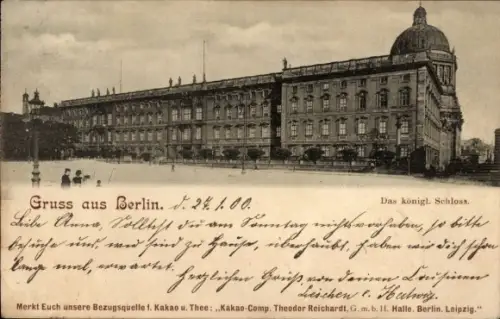 Das königl. Schloss.
Gruss aus Berlin. d. 24.1.00.
Liebe Anna, Solltest du am Sonntag nichts vorhaben, so bitte
besuche uns, wir sind zu Hause, überhaupt, haben wir dich schon
lange mal, erwartet. Herzlichen Gruß von deinen Cousinen
Lieschen u. Hedwig.
Merkt Euch unsere Bezugsquelle f. Kakao u. Thee: „Kakao-Comp. Theodor Reichardt, G.m.b.H. Halle. Berlin. Leipzig."